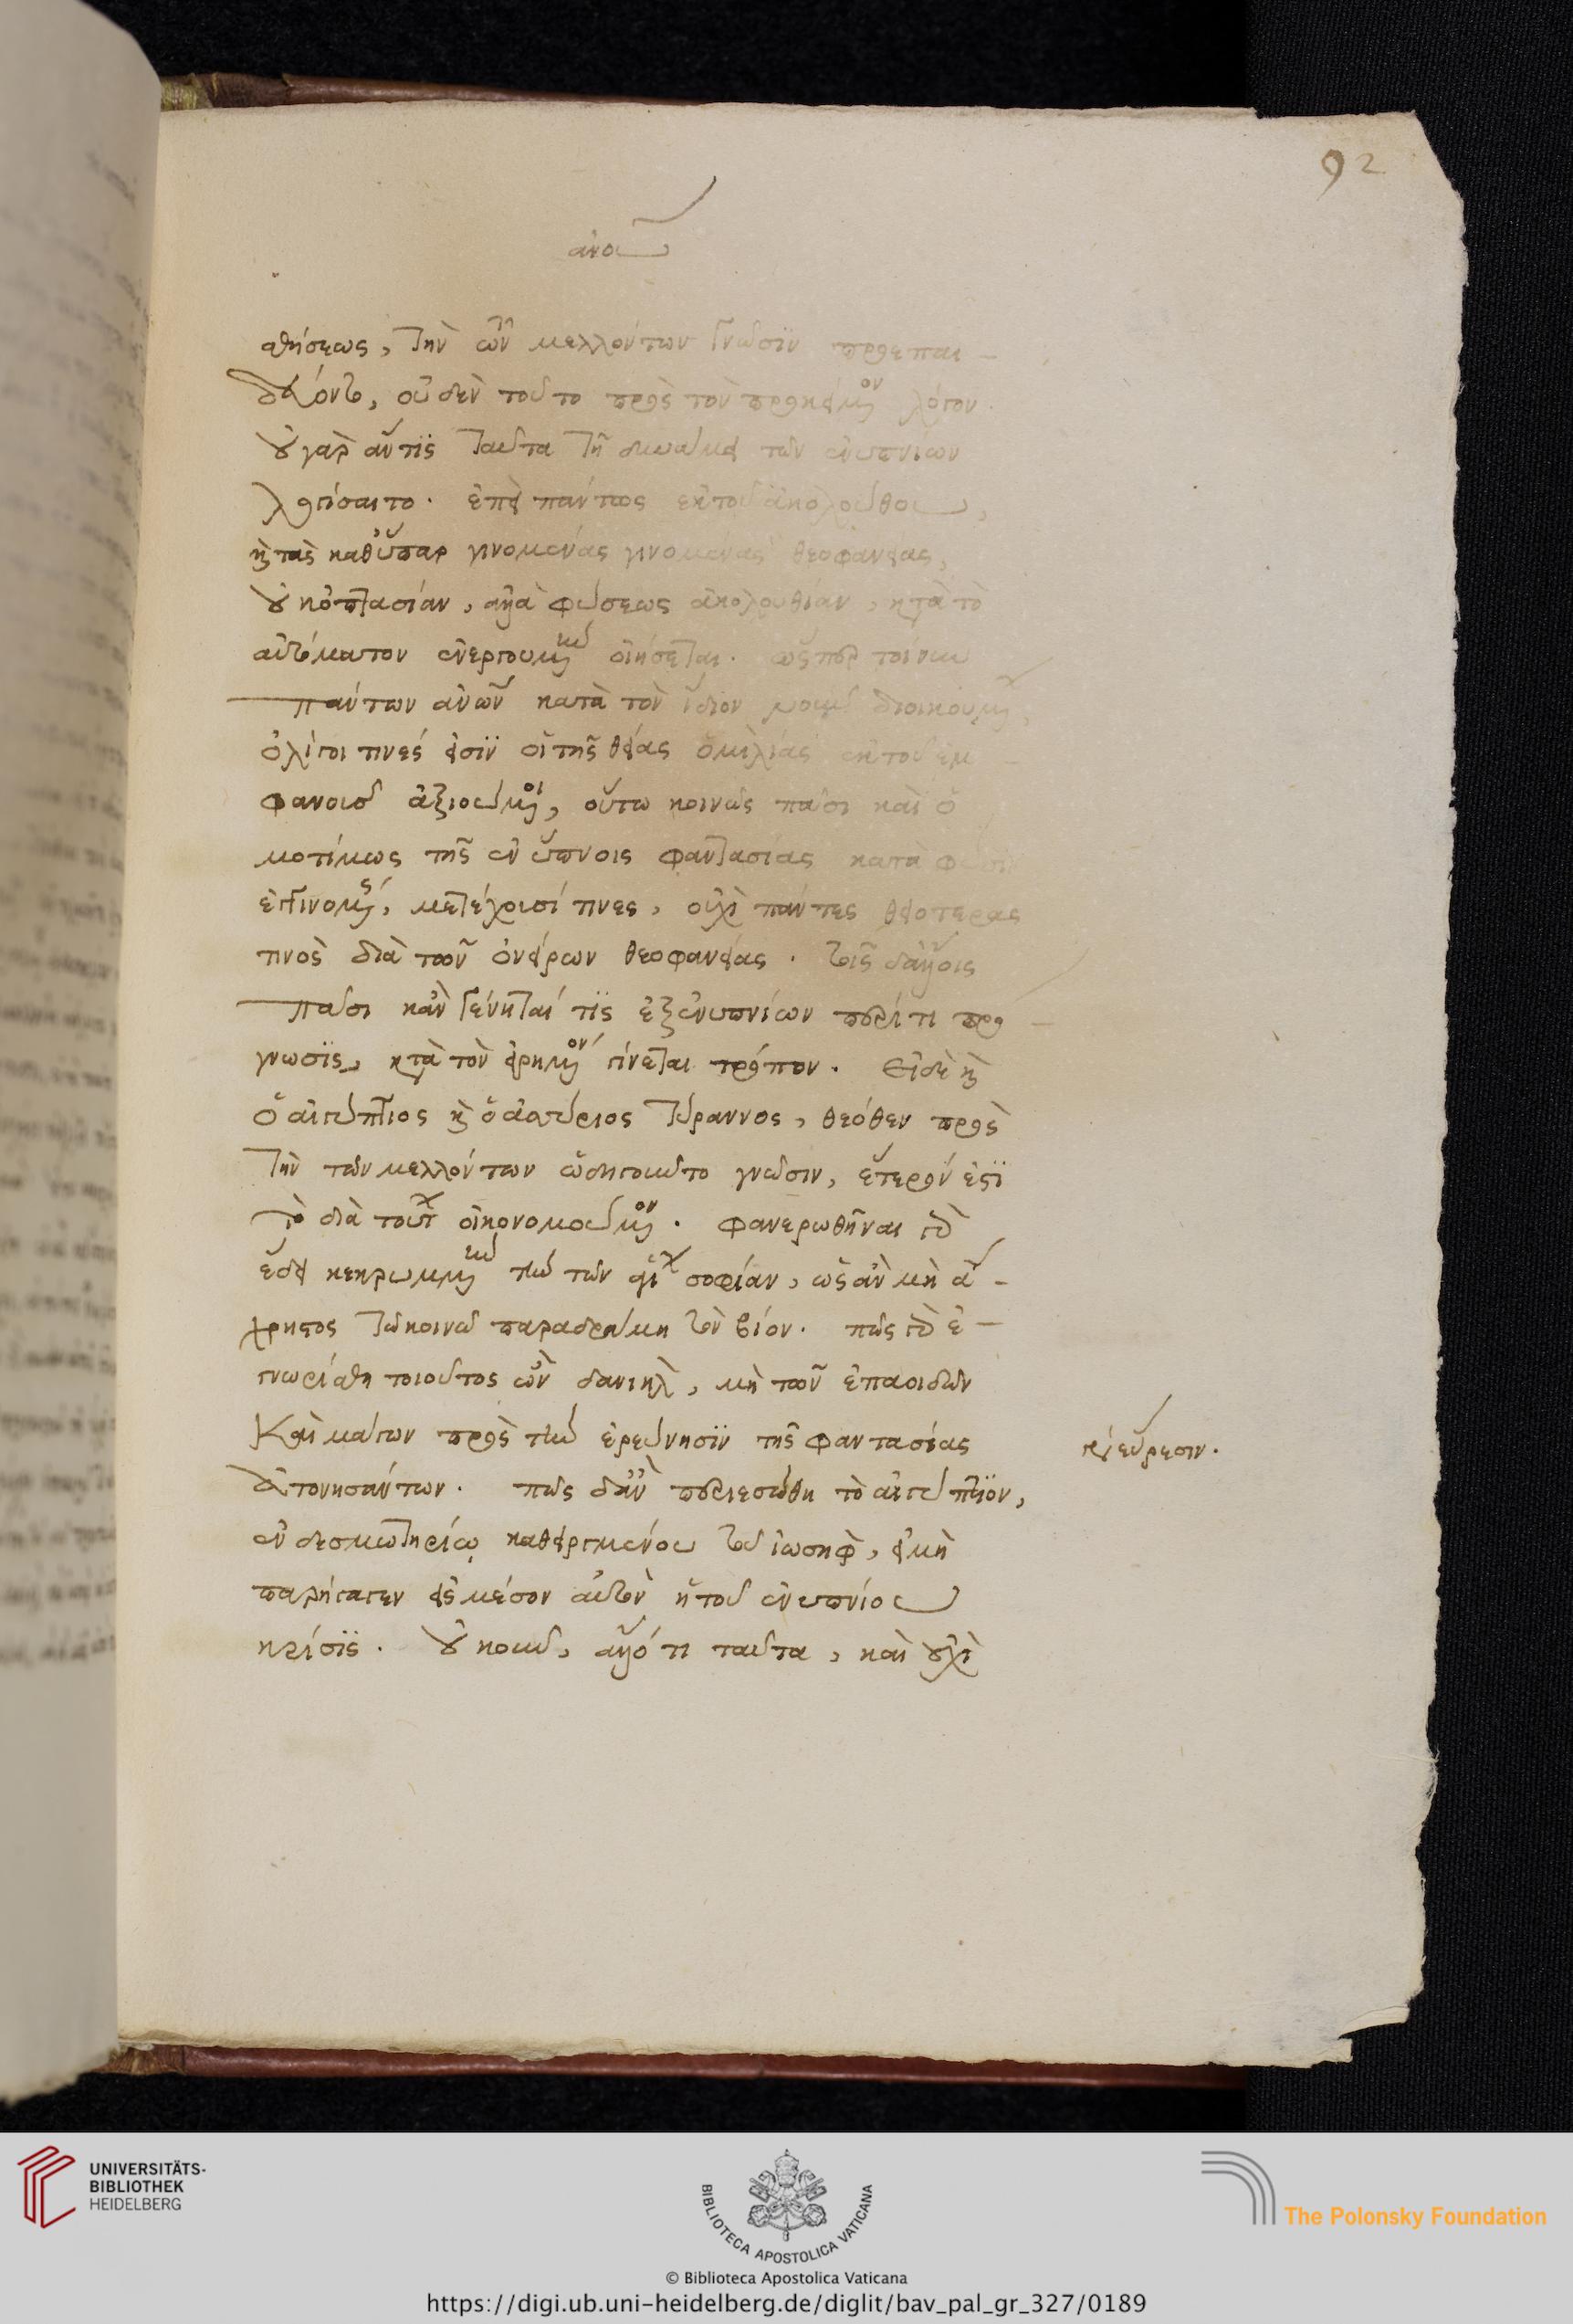 92
ἀνου
αθήσεως, τὴν τῶν μελλόντων γνῶσιν προεπαι-
δεύοντο, οὐδὲν τοῦτο πρὸς τὸν προκείμενον λόγον.
οὐ γὰρ ἄν τις ταῦτα τῇ δυνάμει τῶν ἐνυπνίων
λογίσαιτο. ἐπεὶ πάντως ἐκ τοῦ ἀκολούθου,
καὶ τὰς καθ' ὕπαρ γινομένας γινομένας θεοφανείας,
οὐ κατ' ὀπτασίαν, ἀλλὰ φύσεως ἀκολουθίαν, κατὰ τὸ
αὐτόματον ἐνεργουμένην οἰήσεται. ὥσπερ τοίνυν
πάντων ἀνων κατὰ τὸν ἴδιον νοῦν διοικουμένων,
ὀλίγοι τινές εἰσιν οἱ τῆς θείας ὁμιλίας ἐκ τοῦ ἐμ
φανοῦς ἀξιούμενοι, οὕτω κοινῶς πᾶσι καὶ ὁ
μοτίμως τῆς ἐν ὕπνοις φαντασίας κατὰ φύσιν
ἐγγινομένης, μετέχουσί τινες, οὐχὶ πάντες θειοτέρας
τινὸς διὰ τῶν ὀνείρων θεοφανείας. τοῖς δ' ἄλλοις
πᾶσι κἂν γένηταί τις ἐξ ἐνυπνίων περί τι πρό
γνωσις, κατὰ τὸν εἰρημένον γίνεται τρόπον. εἰ δὲ καὶ
ὁ αἰγύπτιος καὶ ὁ ἀσσύριος τύραννος, θεόθεν πρὸς
τὴν τῶν μελλόντων ὡδηγοῦντο γνῶσιν, ἕτερόν ἐστι
τὸ διὰ τούτων οἰκονομούμενον. φανερωθῆναι γὰρ
ἔδει κεκρυμμένην τὴν τῶν ἁγίων σοφίαν, ὡς ἂν μὴ ἄ-
χρηστος τῷ κοινῷ παραδράμῃ τὸν βίον. πῶς γὰρ ἐ-
γνωρίσθη τοιοῦτος ὢν δανιὴλ, μὴ τῶν ἐπαοιδῶν
καὶ μάγων πρὸς τὴν ἐρεύνησιν τῆς φαντασίας
γρ εὕρεσιν.
ἀτονησάντων. πῶς δ' ἂν περιεσώθη τὸ αἰγύπτιον,
ἐν δεσμωτηρίῳ καθειργμένου τοῦ ἰωσὴφ, εἰ μὴ
παρήγαγεν εἰς μέσον αὐτὸν ἡ τοῦ ἐνυπνίου
κρίσις. οὐκοῦν, ἄλλό τι ταῦτα, καὶ οὐχὶ
UNIVERSITÄTS-
BIBLIOTHEK
HEIDELBERG
BIBLIOTECA APOSTOLICA VATICANA
The Polonsky Foundation
© Biblioteca Apostolica Vaticana
https://digi.ub.uni-heidelberg.de/diglit/bav_pal_gr_327/0189